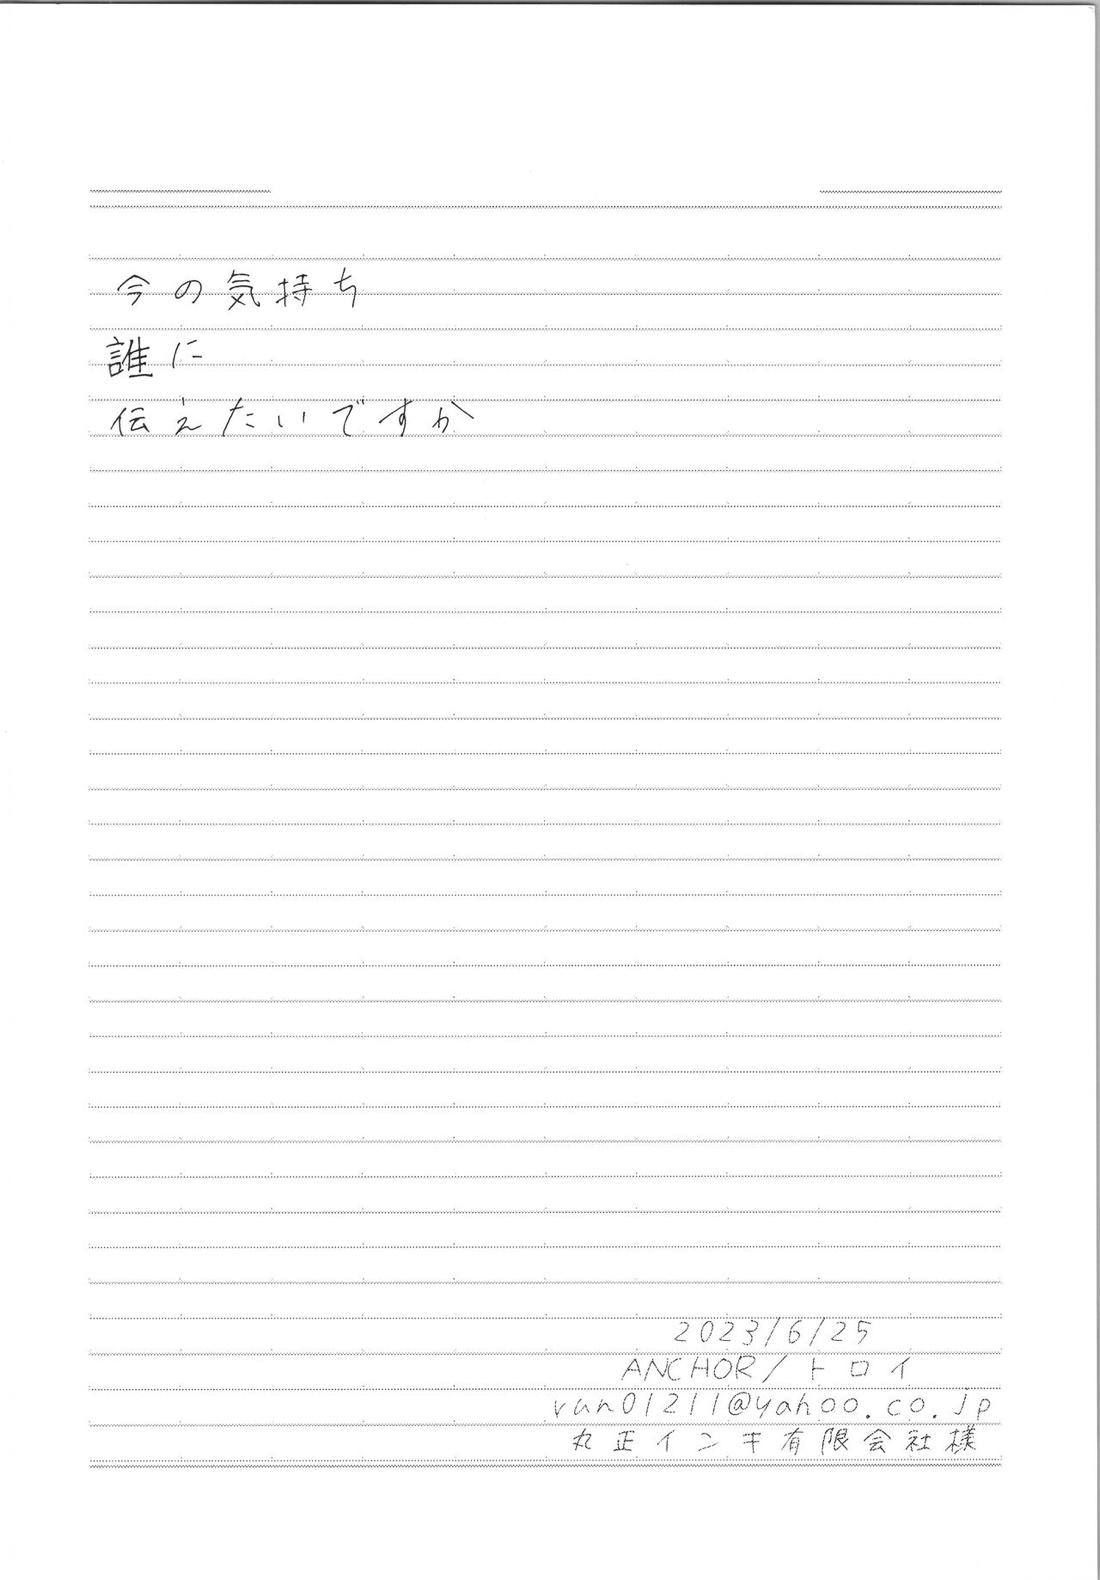 今の気持ち
誰に
伝えたいですか
2023/6/25
ANCHOR/トロイ
run01211@yahoo.co.jp
丸正インキ有限会社様